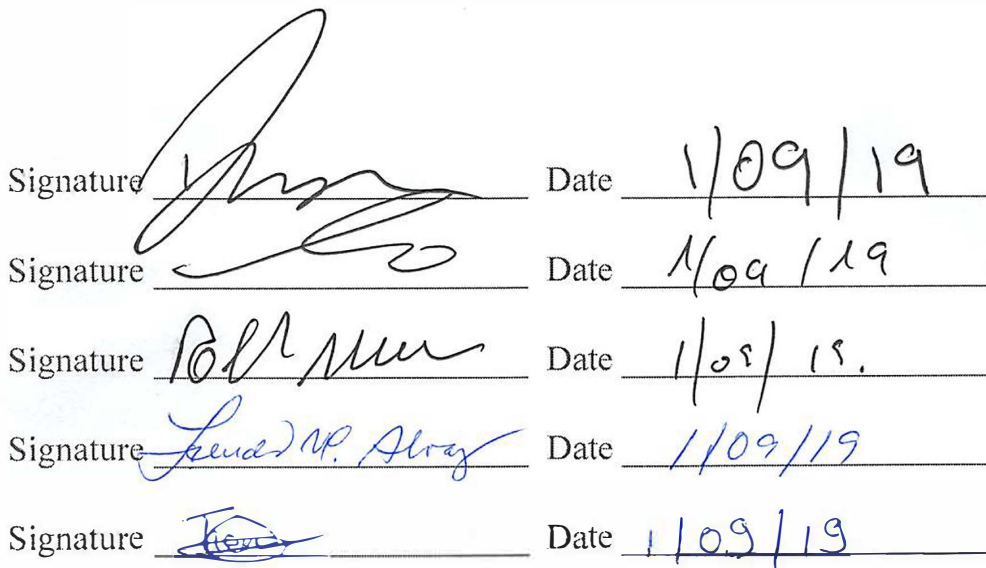 Signature Date 1/09/19
Signature Date 1/09/19
Signature Date 1/09/19.
Signature Date 1/09/19
Signature Date 1/09/19